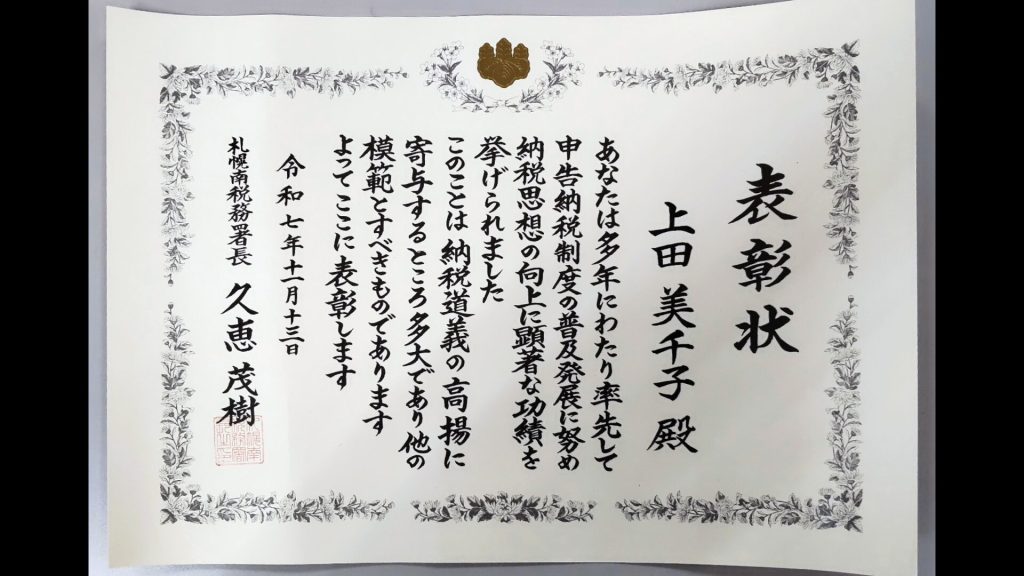 表彰状
上田 美千子 殿
あなたは多年にわたり率先して
申告納税制度の普及発展に努め
納税思想の向上に顕著な功績を
挙げられました
このことは納税道義の高揚に
寄与するところ多大であり他の
模範とすべきものであります
よってここに表彰します
令和七年十一月十三日
札幌南税務署長 久恵 茂樹